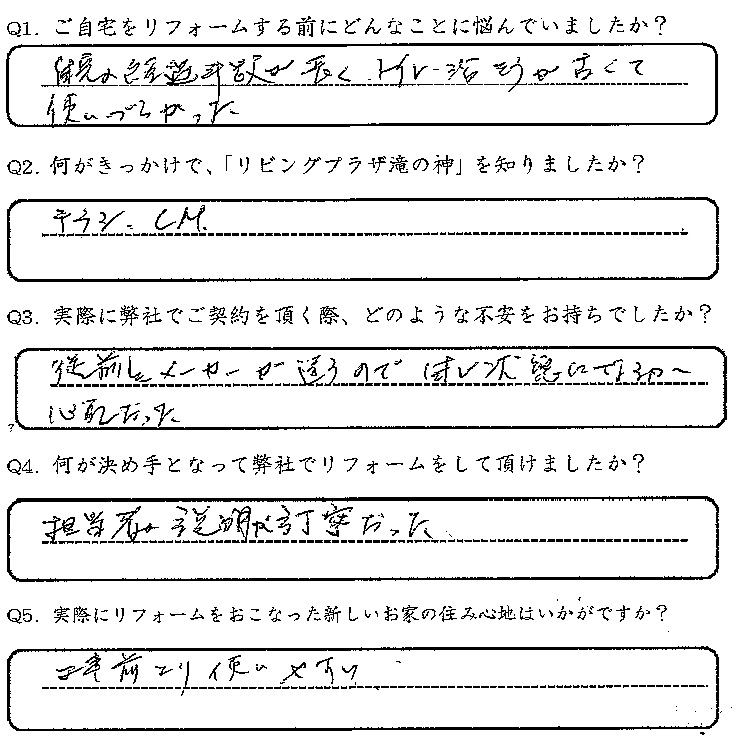 Q1. ご自宅をリフォームする前にどんなことに悩んでいましたか？
が長く、トイレ が古くて
使いづらかった
Q2. 何がきっかけで、「リビングプラザ滝の神」を知りましたか？
チラシ、CM.
Q3. 実際に弊社でご契約を頂く際、どのような不安をお持ちでしたか？
従前とメーカーが違うので
心配だった
Q4. 何が決め手となって弊社でリフォームをして頂けましたか？
担当者の説明が丁寧だった.
Q5. 実際にリフォームをおこなった新しいお家の住み心地はいかがですか？
工事前より使いやすい